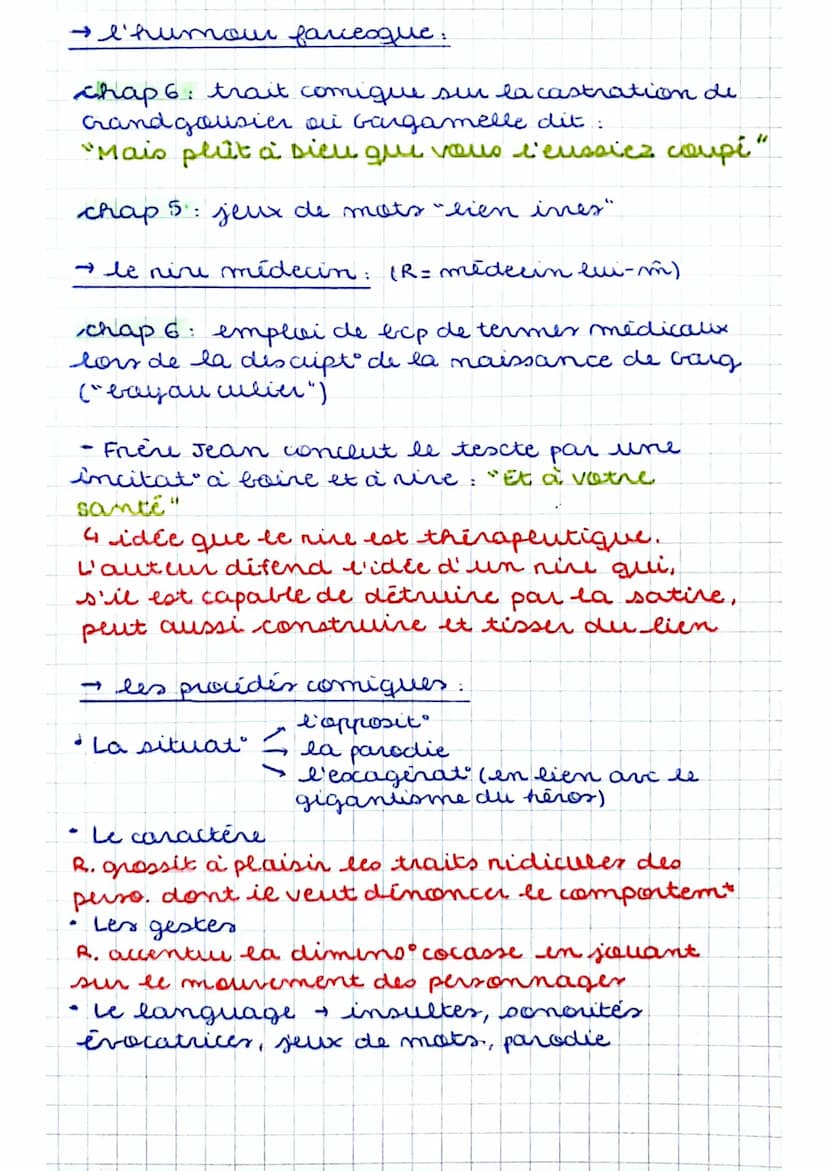 → l'humour farcesque :
chap 6 : trait comique sur la castration de
Grandgousier où Gargamelle dit :
"Mais plût à Dieu que vous l'eussiez coupé"
chap 5 : jeux de mots "lien ines"
→ le rire médecin : (R = médecin lui-m̂)
chap 6 : emploi de bcp de termes médicaux
lors de la descript° de la naissance de Garg
("boyau culier")
- Frère Jean conclut le texte par une
incitat° à boire et à rire : "Et à votre
santé"
↳ idée que le rire est thérapeutique.
L'auteur défend l'idée d'un rire qui,
s'il est capable de détruire par la satire,
peut aussi construire et tisser du lien
→ les procédés comiques :
• La situat° → l'opposit°
→ la parodie
→ l'exagérat° (en lien avc le
gigantisme du héros)
• Le caractère
R. grossit à plaisir les traits ridicules des
perso. dont il veut dénoncer le comportemt
• Les gestes
R. accentue la dimens° cocasse en jouant
sur le mouvement des personnages
• Le language → insultes, sonorités
évocatrices, jeux de mots., parodie